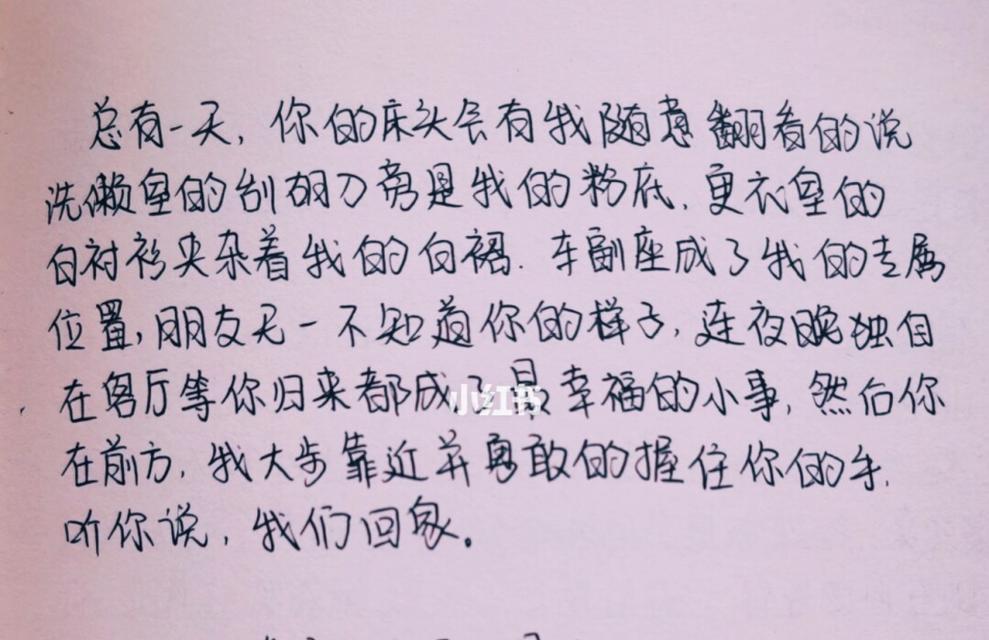 总有一天，你的床头会有我随意翻看的说
洗漱室的刮胡刀旁是我的粉底，更衣室的
白衬衫夹杂着我的白裙．车副座成了我的专属
位置，朋友无一不知道你的样子，连夜晚独自
在客厅等你归来都成了最幸福的小事，然后你
在前方，我大步靠近并勇敢的握住你的手．
听你说，我们回家。
小红书